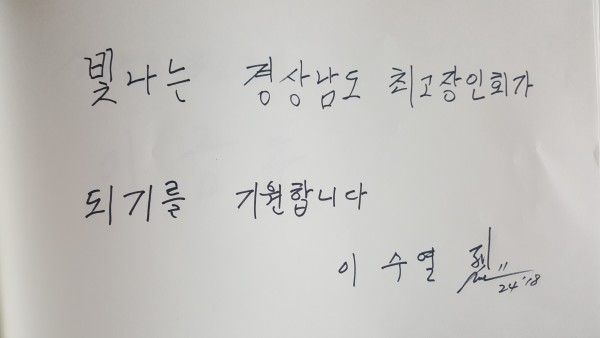 빛나는 경상남도 최고장인회가
되기를 기원합니다
이 수열
11/24 '18